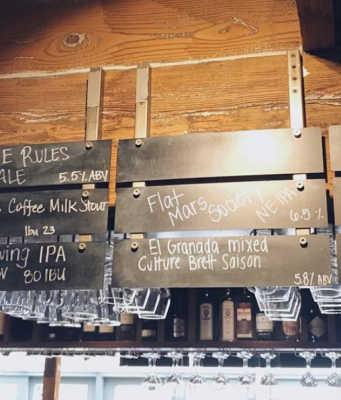 E RULES
ALE 5.5% ABV
Coffee Milk Stout
Ibu 23
wing IPA
BV 80 IBU
Flat
Mars Society NE IPA
6.5 %
El Granada mixed
Culture Brett Saison
5.8% ABV